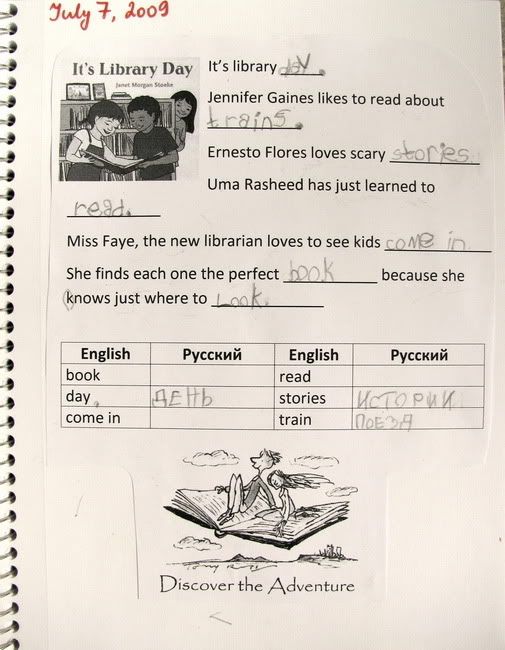 July 7, 2009
It's Library Day
Janet Morgan Stoeke
It's library day.
Jennifer Gaines likes to read about
trains.
Ernesto Flores loves scary stories.
Uma Rasheed has just learned to
read.
Miss Faye, the new librarian loves to see kids come in
She finds each one the perfect book because she
knows just where to Look.
English Русский English Русский
book read
day. ДЕНЬ stories ИСТОРИИ
come in train ПОЕЗД
Discover the Adventure